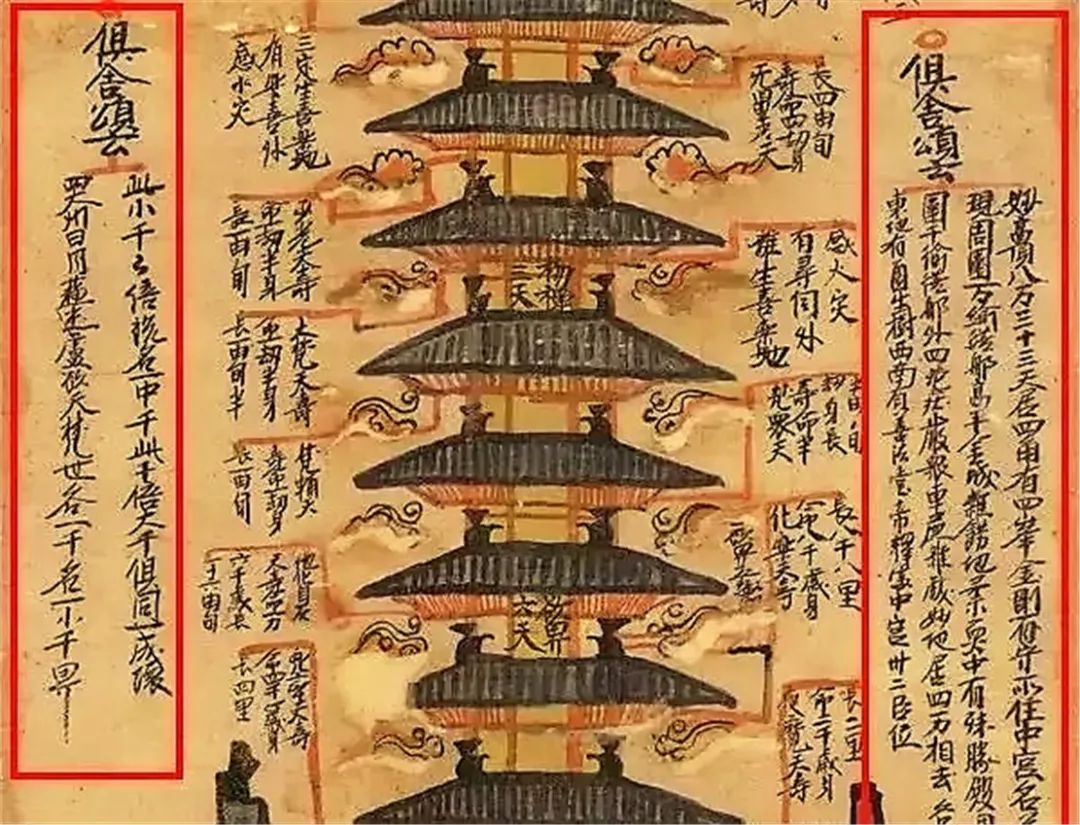 俱舍頌云
妙高頂八万三十三天居四角有四峯金剛手所住中宮名善
現周圍万踰繕那高半金城雜錯地柔耎中有殊勝殿周
圍千踰繕那外四苑莊嚴衆車麁雜喜妙池居四方相去各
東北有圓生樹西南有善法堂帝釋宮中定卅二臣位
長四由旬
壽命四劫身
无量光天
感火灾
有尋伺外
離生喜樂地
劫身長
壽命半
梵衆天
長十八里
命八千歲身
化樂天壽
長二里
命二千歲身
夜摩天壽
初禪
三天
欲界
六天
定生喜樂地
感水灾
少光天壽
命二劫身
長二由旬
大梵天壽
長一由旬半
梵輔天
壽命一劫身
長一由旬
他化自在
天壽万
六千歲長
兜率天壽
命四千歲身
長四里
俱舍頌云
此小千千倍說名中千此千倍大千俱同一成壞
四大州日月蘓迷盧欲天梵世各一千名一小千界